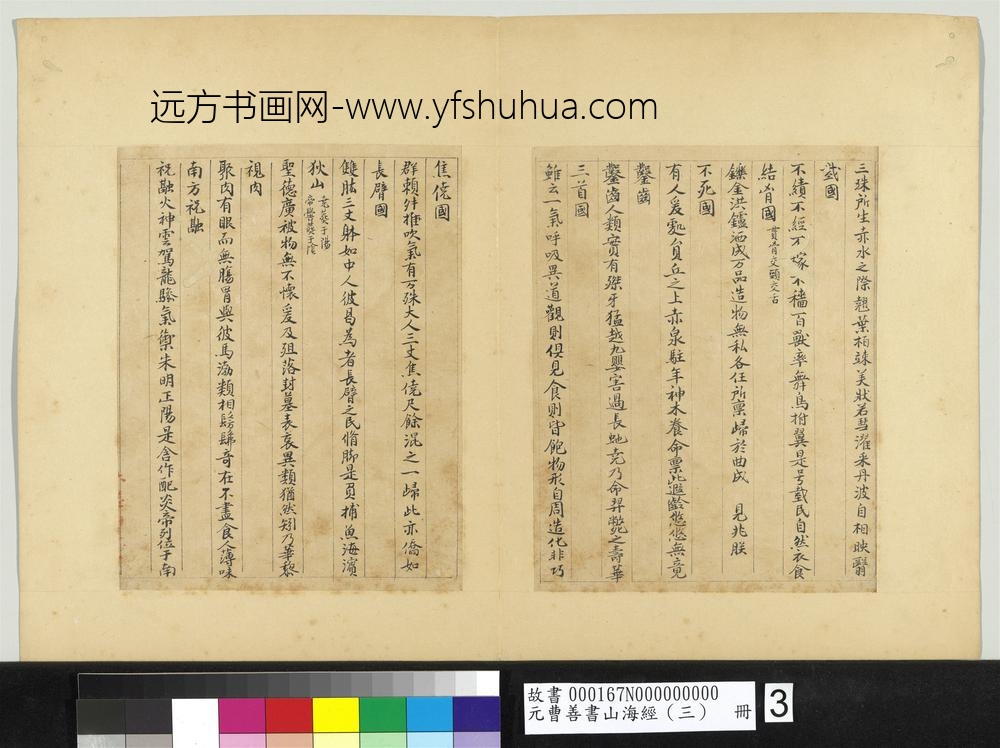 远方书画网-www.yfshuhua.com
三珠所生赤水之際翹葉柏竦美狀若彗濯采丹波自相映翳
臷國
不績不經不塚不穡百獸率舞鳥拊翼是号臷民自然衣食
結胷國 貫胷交頸交舌
鑠金洪鑪洒成万品造物無私各任所稟歸於曲成 見兆朕
不死國
有人爰處負丘之上赤泉駐年神木養命稟此遐齡悠悠無竟
鑿齒
鑿齒人類實有傑牙猛越九嬰害過長虵堯乃命羿斃之壽華
三首國
雖云一氣呼吸異道觀則俱見食則皆飽物形自周造化非巧
焦僥國
群籟舛推吹氣有万殊大人三丈焦僥尺餘混之一歸此亦僑如
長臂國
雙肱三丈躰如中人彼曷為者長臂之民脩脚是負捕魚海濱
狄山 堯葬于陽
帝嚳葬于陰
聖德廣被物無不懷爰及殂落封墓表哀異類猶然矧乃華黎
視肉
聚肉有眼而無腸胃與彼馬勃類相髣髴奇在不盡食人薄味
南方祝融
祝融火神雲駕龍驂氣禦朱明正陽是含作配炎帝列位于南
故書 000167N000000000
元曹善書山海經(三) 冊
3